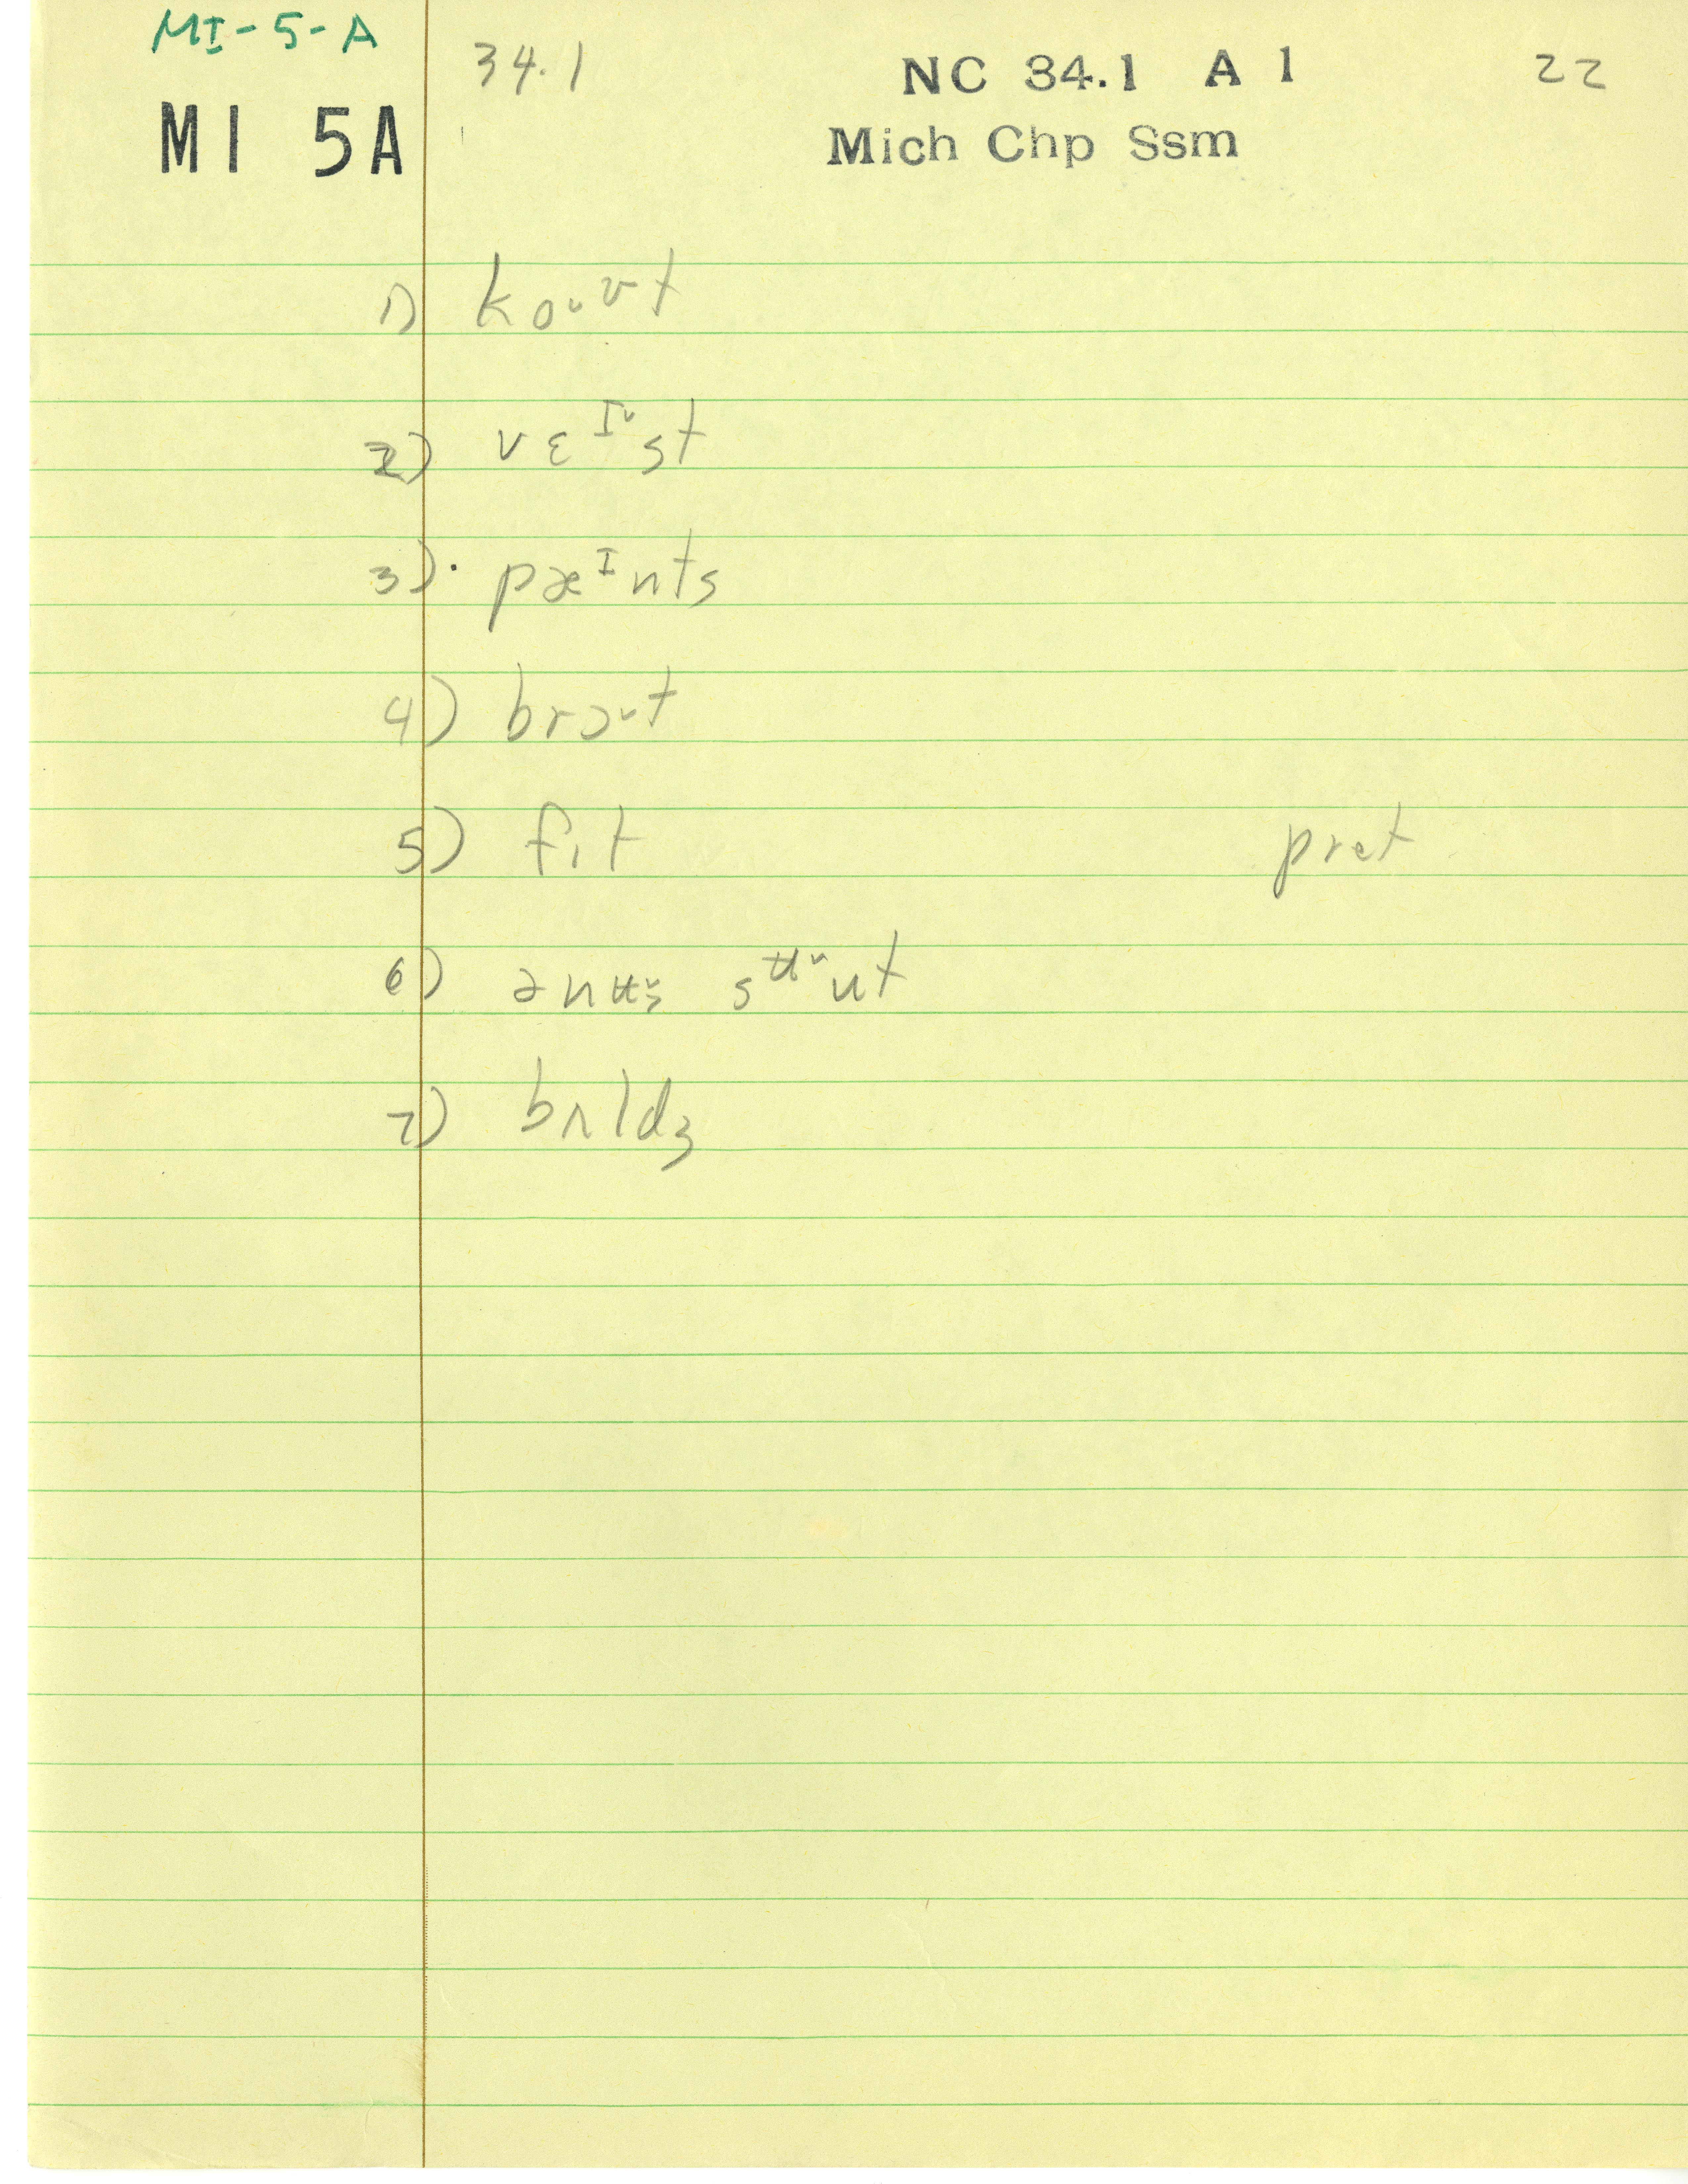 MI-5-A
34.1
NC 34.1 A 1
22
MI 5A
Mich Chp Ssm
1) koᵕʊt
2) vɛᴵᵕst
3) pæᴵnts
4) brɔᵕt
5) fɪt pret
6) ənʉᵕ sᵾᵕut
7) bʌldʒ